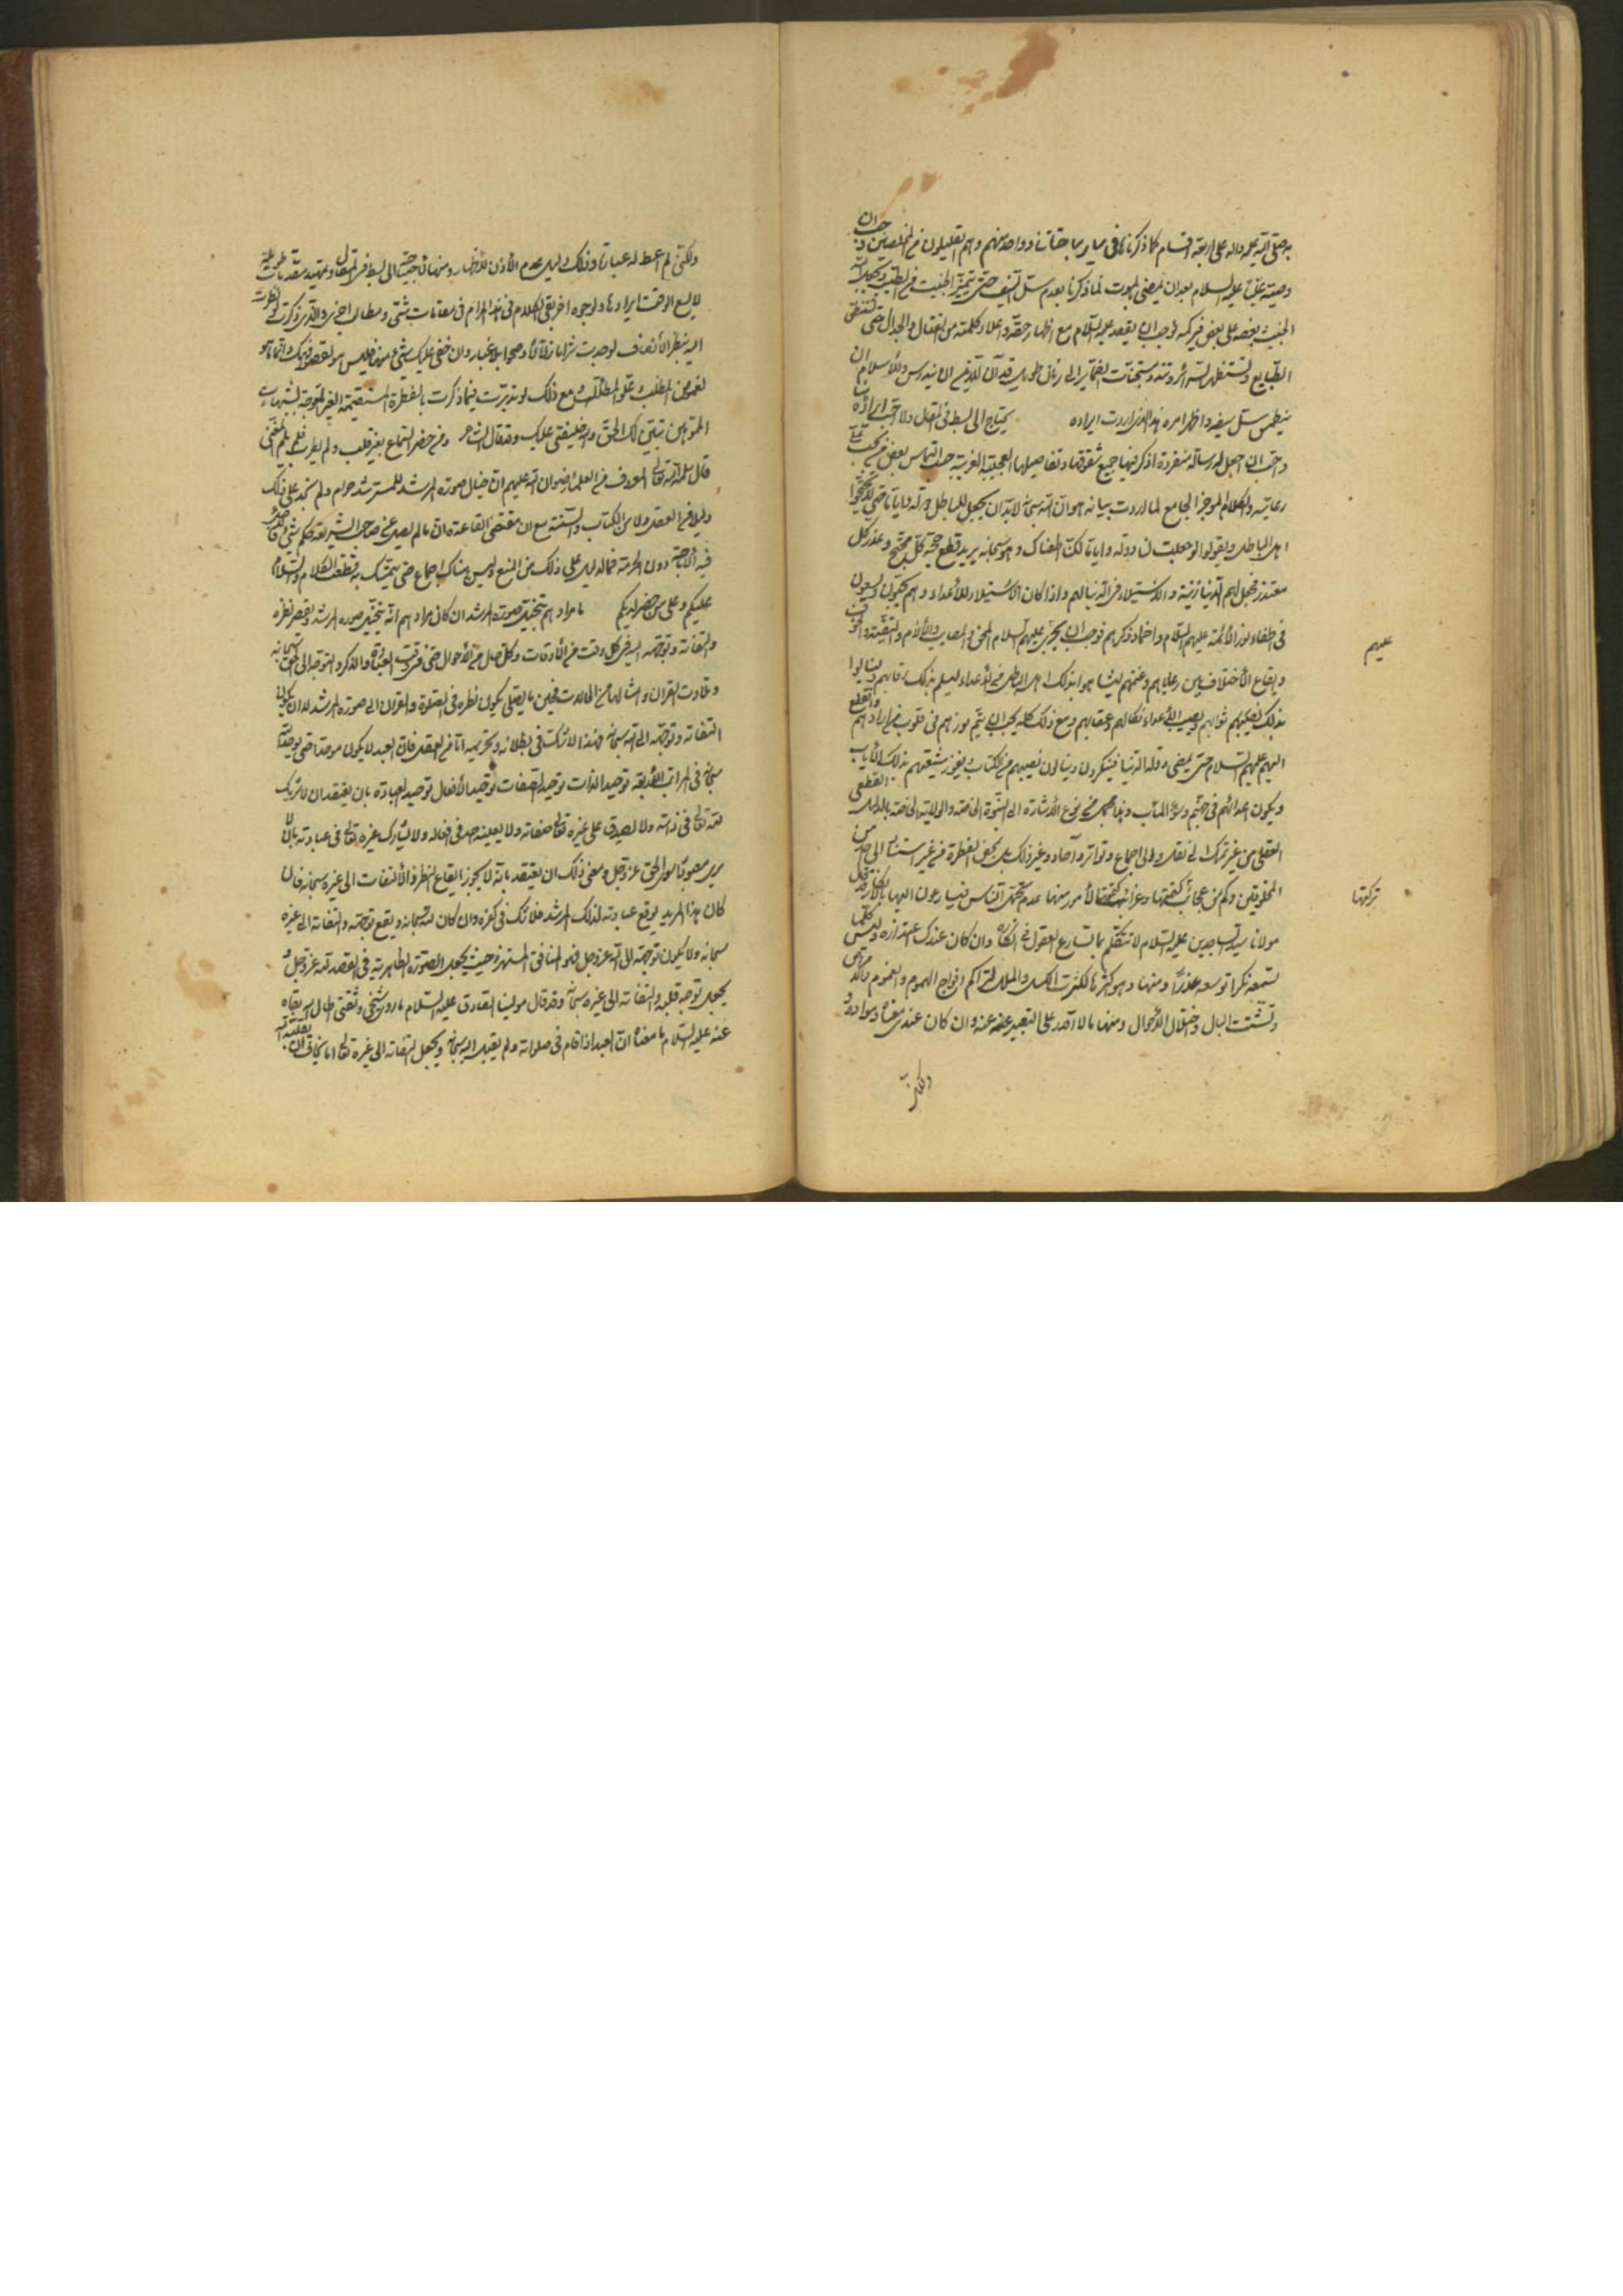 به صلى الله عليه واله على اربعة اقسام كما ذكرنا في ساير مباحثاتنا وواحد منهم وهم القليلون من المخلصين وجب ان
وصيته علي عليه السلام بعد ان يمضي الموت لما ذكرنا بعدم سل السيف حتى يتميز الخبيث من الطيب ويجعل الله
الخبيث بعضه على بعض فيركمه فوجب ان يقعد عليه السلام مع اظهار حقه واعلاء كلمته من القتال والجدال حتى
الطبايع وتستظهر السرائر وتبدو مستجنات الضمائر الى زمان طويل قد آن للدين ان يندرس وللاسلام ان
ينطمس سل سيفه واظهر امره هذا الذي اردت ايراده يحتاج الى البسط في المقال ولا احب ايراده
واحب ان اجعل له رسالة منفردة اذكر فيها جميع شقوقها وتفاصيلها العجيبة الغريبة حسب التماس بعض من يجب
رعايته والكلام الموجز الجامع لما اردت بيانه هو ان الله سبحانه لا بد ان يجعل للباطل دولة واياما حتى
اهل الباطل ويقولوا لو جعلت لنا دولة واياما لكنا اطعناك وهو سبحانه يريد قطع حجة كل محتج وعذر كل
معتذر فجعل لهم الدنيا زينة والاستيلاء في الدنيا لهم واذا كان الاستيلاء للاعداء وهم يحبون ويسعون
في اطفاء نور الائمة عليهم السلام واخماد ذكرهم فوجب ان يجري عليهم السلام المحن والمصايب والآلام والتقية والخوف
وايقاع الاختلاف بين رعاياهم وغنمهم ليتساهوا بذلك اهل الباطل من الاعداء ليسلم بذلك رقابهم وينالوا
عليهم
بذلك نصيبهم ثوابهم ويصيب الاعداء نكالهم وعقابهم ومع ذلك كله يجب ان يتم نورهم في قلوب من ارادهم
اليهم عليهم السلام حتى يمضي دولة الدنيا فيشكرون وينالون نصيبهم من الكتاب ويفوز شيعتهم بذلك
ويكون اعدائهم في جهنم وسوء المآب وهذا مجمل من نوع الاشارة الى النبوة الخاصة والولاية الخاصة بالدليل القطعي
العقلي من غير تمسك الى نقل ولا الى اجماع وتواتر وآحاد وغير ذلك بل بمحض الفطرة من غير استناد الى احد من
المخلوقين وكم من عجائب كتمتها وغرائب كتمتها لأمور منها عدم تحمل الناس فيسارعون اليها بالانكار وقد قال
تركتها
مولانا سيد الساجدين عليه السلام لا تتكلم بما تسارع العقول الى انكاره وان كان عندك اعتذاره وليس كلما
تسمعه نكرا توسعه عذرا ومنها وهو اكثر ما لكثرت الكسل والملال لتراكم افواج الهموم والغموم والامراض
وتشتت البال واختلال الاحوال ومنها ما لا اقدر على التعبير عنه وان كان عندي معناه وموادة
ولكني
ولكني لم اعط له عبارة وذلك دليل عدم الاذن للاظهار ومنها لما احتجت الى بسط في المقال وتمهيد مقدمات طويلة
لا يسع الوقت ايرادها ولوجوه اخر بقي الكلام في هذا المرام في مقامات شتى ومطالب اخرى والذي ذكرت لو نظرت
اليه بنظر الانصاف لوجدت شرابا زلالا وصحوا بلا غبار وان خفي عليك شيء منها فليس هو لقصور فهمك وانما هو
لغموض المطلب وعلو المطلب ومع ذلك لو تدبرت فيما ذكرت بالفطرة المستقيمة الغير المعوجة بشبهات
المموهين تبين لك الحق والله خليفتي عليك وقد قال الشاعر ومن حضر السماع بغير قلب ولم يطرب فلا يلم المغني
قال سلمه الله تعالى المعروف من العلماء رضوان الله عليهم ان خيال صورة المرشد للمسترشد حرام ولم نجد على ذلك
دليلا من العقل ولا من الكتاب والسنة مع ان مقتضى القاعدة ان ما لم يصل عن صاحب الشريعة حكم شيء
فيه الاباحة دون الحرمة فما الدليل على ذلك من المنع وليس هناك اجماع حتى يتمسك به فتنقطع الكلام والسلام
عليكم وعلى من حضر لديكم ما مرادهم بتخيل صورة المرشد ان كان مرادهم انه يتخيل صورة المرشد ويقصر نظره
والتفاته وتوجهه اليه في كل وقت من الاوقات وكل حال من الاحوال حتى في وقت العبادة والذكر والتوجه الى الحق سبحانه
وتلاوت القران وامثالها من الحالات فحين ما يصلي يكون نظره في الصلوة والقران الى صورة المرشد لا ان يكون
التفاته وتوجهه الى الله سبحانه فهذا لا شك في بطلانه وتحريمه اما من العقل فلان العبد لا يكون موحدا حتى يوحد الله
سبحانه في المراتب الاربعة توحيد الذات توحيد الصفات توحيد الافعال توحيد العبادة بان يعتقد ان لا شريك
لله تعالى في ذاته ولا يصدق على غيره تعالى صفاته ولا يعينه احد في افعاله ولا يشارك غيره تعالى في عبادته بان لا
يرى معبودا سوى الحق عز وجل ومعنى ذلك ان يعتقد بانه لا يجوز ايقاع النظر والالتفات الى غيره سبحانه فاذا
كان هذا المريد يوقع عبادته لذلك المرشد فلا شك في كفره وان كان لله سبحانه ويقع توجهه والتفاته الى غيره
سبحانه ولا يكون توجهه الى الله عز وجل فهو المنافق المستهزء حيث يجعل الصورة الظاهرية في القصد لله عز وجل و
يجعل توجه قلبه والتفاته الى غيره سبحانه وقد قال مولينا الصادق عليه السلام ما روى شيخي وثقتي اطال الله بقاه
عنه عليه السلام ما معناه ان العبد اذا قام في صلواته ولم يقبل اليه سبحانه ويجعل التفاته الى غيره تعالى اما يخاف ان